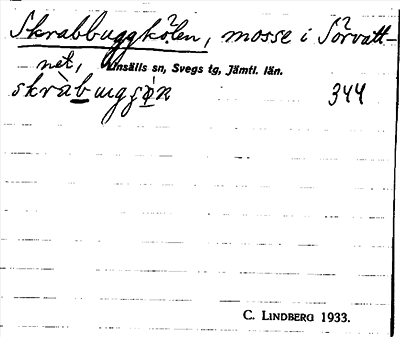 Skrabbuggkölen, mosse i Sörvatt-
net, Linsälls sn, Svegs tg, Jämtl. län.
344
C. LINDBERG 1933.